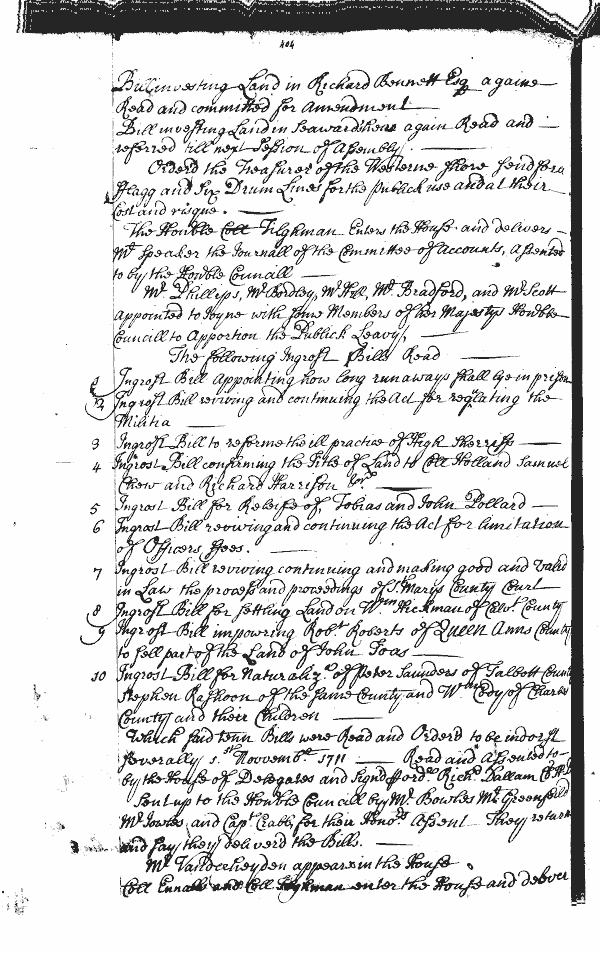 404
Bill investing Land in Richard Bennett Esq againe
Read and committed for Amendment
Bill investing Land in Seaward here again Read and
referred till next Session of Assembly.
Orderd the Treasurer of the Westerne Shore send for a
Flagg and Six Drum Lines for the publick use and at their
Cost and risque.
The Honble Coll Tilghman Enters the House and delivers
Mr Speaker the Journall of the Committee of Accounts, Assented
to by the Honble Councill
Mr Phillips, Mr Bordley, Mr Hill, Mr Bradford, and Mr Scott
Appointed to Joyne with some Members of her Majestys Honble
Councill to Apportion the Publick Leavy,
The following Ingrost Bills Read
1 Ingrost Bill Appointing how long runaways shall lye in prison
2 Ingrost Bill reviving and continuing the Act for reglating the
Militia
3 Ingrost Bill to reforme the ill practice of High Sherriffs
4 Ingrost Bill confirming the Title of Land to Coll Holland Samuel
Chew and Richard Harrison
5 Ingrost Bill for Releife of Tobias and John Pollard
6 Ingrost Bill reviving and continuing the Act for limitation
of Officers ffees.
7 Ingrost Bill reviving continuing and making good and Valid
in Law the process and proceedings of St Marys County Court
8 Ingrost Bill for settling Land on Wm Hickman of County
9 Ingrost Bill impowring Robt Roberts of Queen Anns County
to sell part of the Land of John Toas
10 Ingrost Bill for Naturaliz of Peter Saunders of Talbott County
Stephen of the same County and Wm Cody of Charles
County and their Children
Which said tenn Bills were Read and Orderd to be indorst
severally 1st Novembr 1711 Read and Assented to
by the House of Delegates and signd p ord Richd Dallam
Sent up to the Honble Councill by Mr Bowles Mr Greenfeild
Mr Jowles, and Capt Crabb, for their Honrs Assent They return
and say they deliverd the Bills.
Mr Vanderheyden appears in the House
Coll Ennalls and Coll Tilghman enter the House and deliver